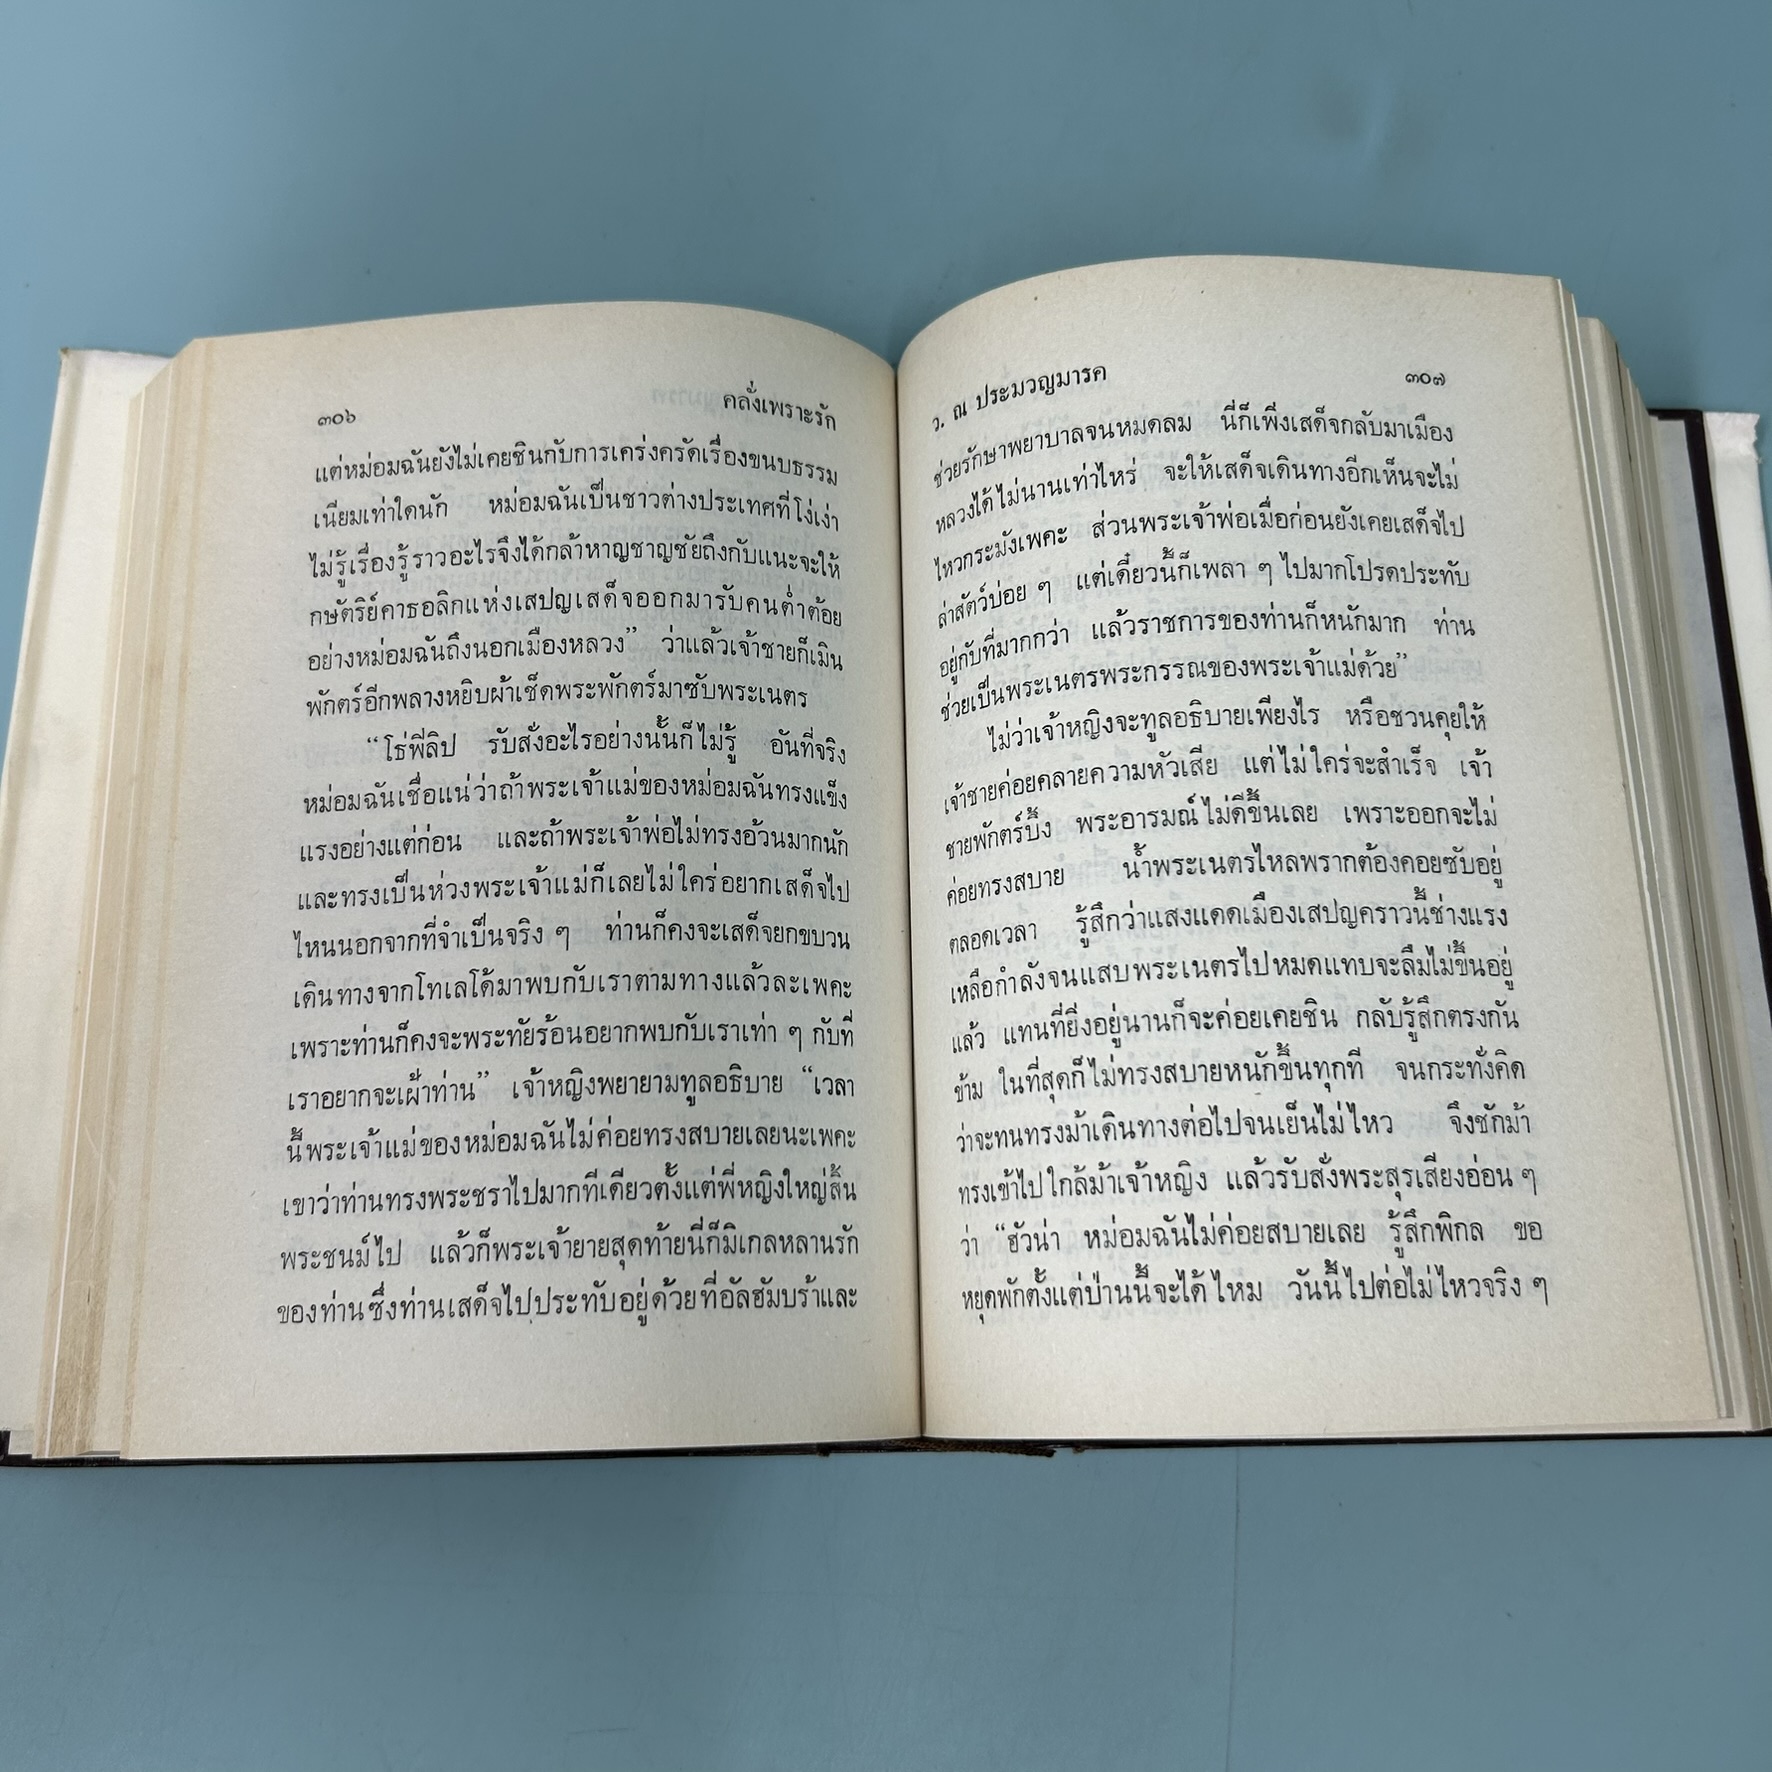 ๓๐๖ คลั่งเพราะรัก
แต่หม่อมฉันยังไม่เคยชินกับการเคร่งครัดเรื่องขนบธรรม
เนียมเท่าใดนัก หม่อมฉันเป็นชาวต่างประเทศที่โง่เง่า
ไม่รู้เรื่องรู้ราวอะไรจึงได้กล้าหาญชาญชัยถึงกับแนะจะให้
กษัตริย์คาธอลิกแห่งเสปญเสด็จออกมารับคนต่ำต้อย
อย่างหม่อมฉันถึงนอกเมืองหลวง” ว่าแล้วเจ้าชายก็เมิน
พักตร์อีกพลางหยิบผ้าเช็ดพระพักตร์มาซับพระเนตร
“โธ่ฟีลิป รับสั่งอะไรอย่างนั้นก็ไม่รู้ อันที่จริง
หม่อมฉันเชื่อแน่ว่าถ้าพระเจ้าแม่ของหม่อมฉันทรงแข็ง
แรงอย่างแต่ก่อน และถ้าพระเจ้าพ่อไม่ทรงอ้วนมากนัก
และทรงเป็นห่วงพระเจ้าแม่ก็เลยไม่ใคร่อยากเสด็จไป
ไหนนอกจากที่จำเป็นจริง ๆ ท่านก็คงจะเสด็จยกขบวน
เดินทางจากโทเลโด้มาพบกับเราตามทางแล้วละเพคะ
เพราะท่านก็คงจะพระทัยร้อนอยากพบกับเราเท่า ๆ กับที่
เราอยากจะเฝ้าท่าน” เจ้าหญิงพยายามทูลอธิบาย “เวลา
นี้พระเจ้าแม่ของหม่อมฉันไม่ค่อยทรงสบายเลยนะเพคะ
เขาว่าท่านทรงพระชราไปมากทีเดียวตั้งแต่พี่หญิงใหญ่สิ้น
พระชนม์ไป แล้วก็พระเจ้ายายสุดท้ายนี่ก็มิเกลหลานรัก
ของท่านซึ่งท่านเสด็จไปประทับอยู่ด้วยที่อัลฮัมบร้าและ
ว. ณ ประมวญมารค ๓๐๗
ช่วยรักษาพยาบาลจนหมดลม นี่ก็เพิ่งเสด็จกลับมาเมือง
หลวงได้ไม่นานเท่าไหร่ จะให้เสด็จเดินทางอีกเห็นจะไม่
ไหวกระมังเพคะ ส่วนพระเจ้าพ่อเมื่อก่อนยังเคยเสด็จไป
ล่าสัตว์บ่อย ๆ แต่เดี๋ยวนี้ก็เพลา ๆ ไปมากโปรดประทับ
อยู่กับที่มากกว่า แล้วราชการของท่านก็หนักมาก ท่าน
ช่วยเป็นพระเนตรพระกรรณของพระเจ้าแม่ด้วย”
ไม่ว่าเจ้าหญิงจะทูลอธิบายเพียงไร หรือชวนคุยให้
เจ้าชายค่อยคลายความหัวเสีย แต่ไม่ใคร่จะสำเร็จ เจ้า
ชายพักตร์บึ้ง พระอารมณ์ไม่ดีขึ้นเลย เพราะออกจะไม่
ค่อยทรงสบาย น้ำพระเนตรไหลพรากต้องคอยซับอยู่
ตลอดเวลา รู้สึกว่าแสงแดดเมืองเสปญคราวนี้ช่างแรง
เหลือกำลังจนแสบพระเนตรไปหมดแทบจะลืมไม่ขึ้นอยู่
แล้ว แทนที่ยิ่งอยู่นานก็จะค่อยเคยชิน กลับรู้สึกตรงกัน
ข้าม ในที่สุดก็ไม่ทรงสบายหนักขึ้นทุกที จนกระทั่งคิด
ว่าจะทนทรงม้าเดินทางต่อไปจนเย็นไม่ไหว จึงชักม้า
ทรงเข้าไปใกล้ม้าเจ้าหญิง แล้วรับสั่งพระสุรเสียงอ่อน ๆ
ว่า “ฮัวน่า หม่อมฉันไม่ค่อยสบายเลย รู้สึกพิกล ขอ
หยุดพักตั้งแต่ป่านนี้จะได้ไหม วันนี้ไปต่อไม่ไหวจริง ๆ